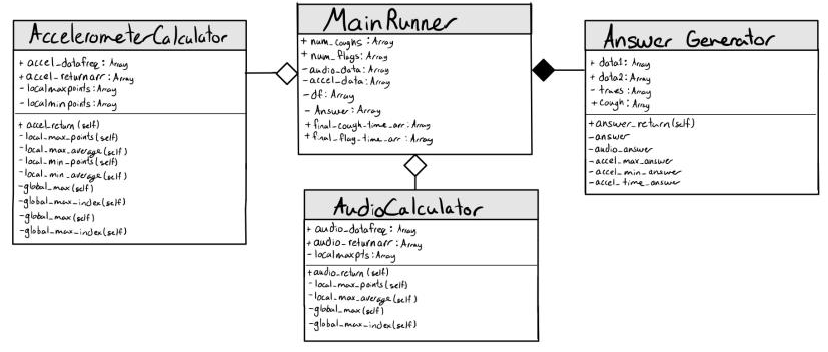 AccelerometerCalculator
+ accel_datafreq: Array
+ accel_returnarr: Array
- localmaxpoints: Array
- localminpoints: Array
+ accel_return (self)
- local_max_points(self)
- local_max_average(self)
- local_min_points(self)
- local_min_average(self)
- global_max(self)
- global_max_index(self)
- global_max (self)
- global_max_index(self)
MainRunner
+ num_coughs : Array
+ num_flags: Array
- audio_data: Array
- accel_data: Array
- df: Array
- Answer: Array
+ final_cough_time_arr: Array
+ final_flag_time_arr: Array
Answer Generator
+ data1: Array
+ data2: Array
- trues: Array
+ cough: Array
+ answer_return(self)
- answer
- audio_answer
- accel_max_answer
- accel_min_answer
- accel_time_answer
AudioCalculator
+ audio_datafreq: Array
+ audio_returnarr: Array
- localmaxpts: Array
+ audio_return (self)
- local_max_points(self)
- local_max_average(self)
- global_max (self)
- global_max_index(self)